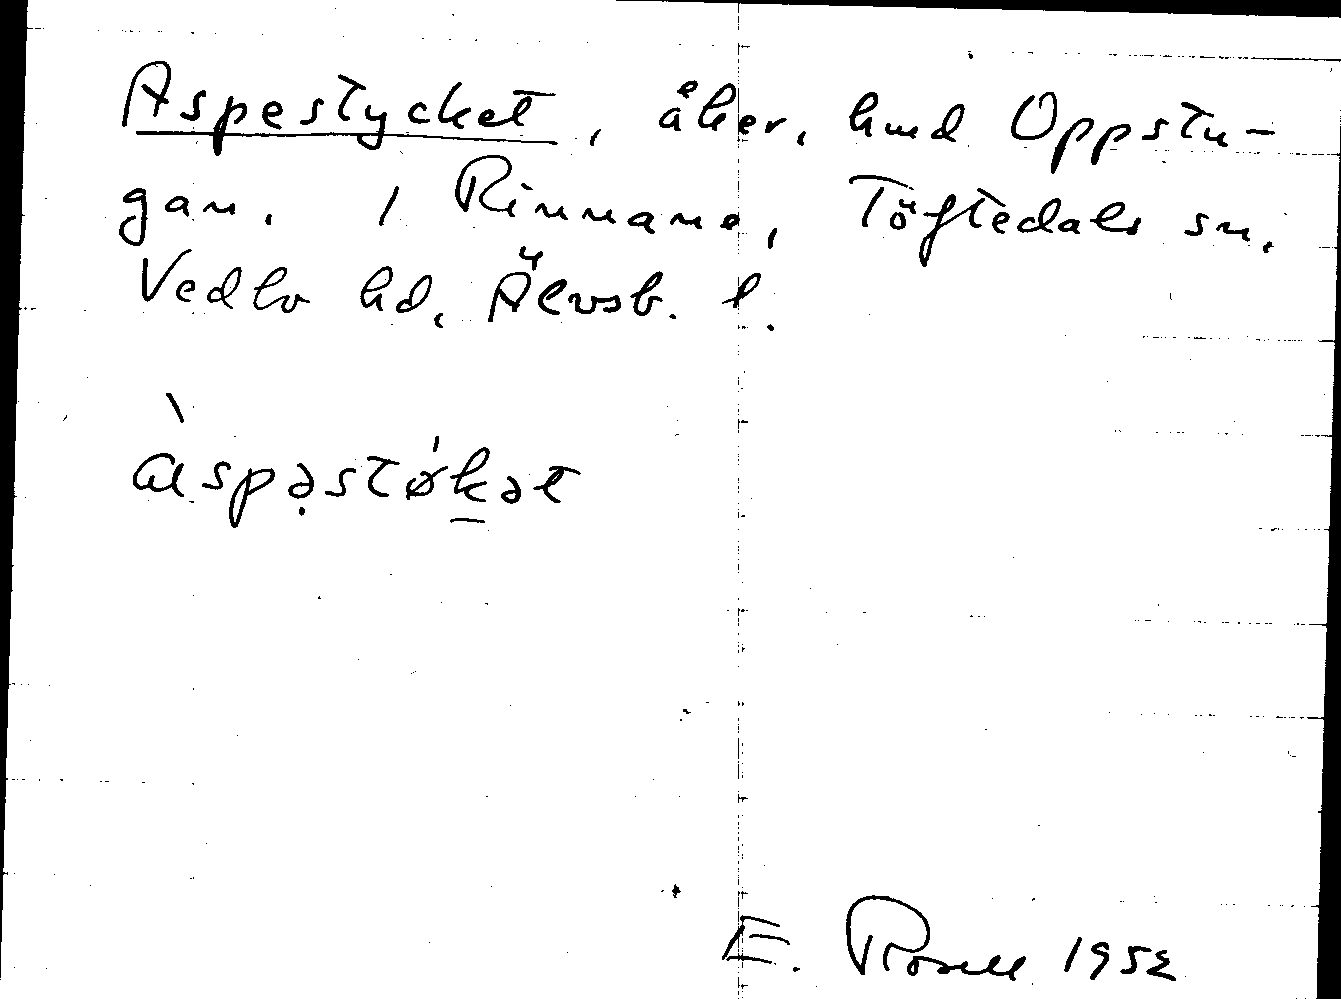 Aspestycket, åker, hmd Oppstu-
gan. 1 Rinnane, Töftedals sn.
Vedbo hd, Älvsb. l.
àspə̣støḱət
E. Rosell 1952